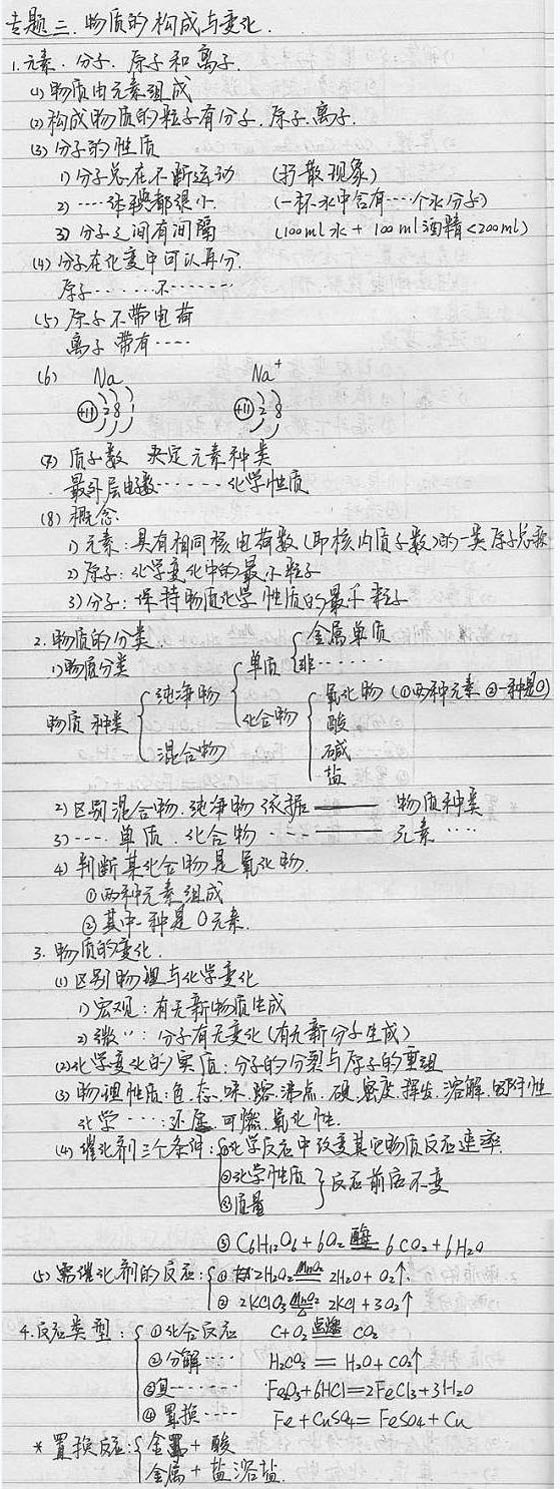 专题三. 物质的构成与变化.
1.元素. 分子. 原子和离子.
(1) 物质由元素组成
(2) 构成物质的粒子有分子.原子.离子.
(3) 分子的性质
1) 分子总在不断运动 (扩散现象)
2) ····体积都很小. (一杯水中含有····个水分子)
3) 分子之间有间隔 (100ml水 + 100ml酒精<200ml)
(4) 分子在化变中可以再分.
原子······不·······
(5) 原子不带电荷
离子 带有····
(6) Na Na⁺
+11 2 8 1 +11 2 8
(7) 质子数 决定元素种类
最外层电子数······化学性质
(8) 概念.
1) 元素:具有相同核电荷数(即核内质子数)的一类原子总称
2) 原子:化学变化中的最小粒子
3) 分子:保持物质化学性质的最小粒子
2. 物质的分类.
1)物质分类
物质 种类 纯净物 单质 金属单质
非······
化合物 氧化物 (①两种元素 ②一种是O)
酸
碱
盐
混合物
2) 区别混合物.纯净物 依据 —— 物质种类
3) ···· 单质. 化合物 ···· —— 元素 ····
4) 判断某化合物是氧化物.
①两种元素组成
②其中一种是O元素.
3. 物质的变化.
(1) 区别物理与化学变化
1) 宏观:有无新物质生成
2) 微··:分子有无变化(有无新分子生成)
(2)化学变化的实质:分子的分裂与原子的重组
(3) 物理性质:色.态.味.熔.沸点.硬.密度.挥发.溶解.吸附性
化学····:还原.可燃.氧化性.
(4) 催化剂三个条件:①化学反应中改变其它物质反应速率.
②化学性质
③质量 反应前后不变
③ C₆H₁₂O₆ + 6O₂ 酶 6CO₂ + 6H₂O
(5) 需催化剂的反应:① 2H₂O₂ MnO₂ 2H₂O + O₂↑.
② 2KClO₃ MnO₂ △ 2KCl + 3O₂↑
4.反应类型:①化合反应 C+O₂ 点燃 CO₂
②分解···· H₂CO₃ = H₂O + CO₂↑
③复······ Fe₂O₃+6HCl=2FeCl₃+3H₂O
④置换···· Fe + CuSO₄ = FeSO₄ + Cu
* 置换反应:金属 + 酸
金属 + 盐溶盐.